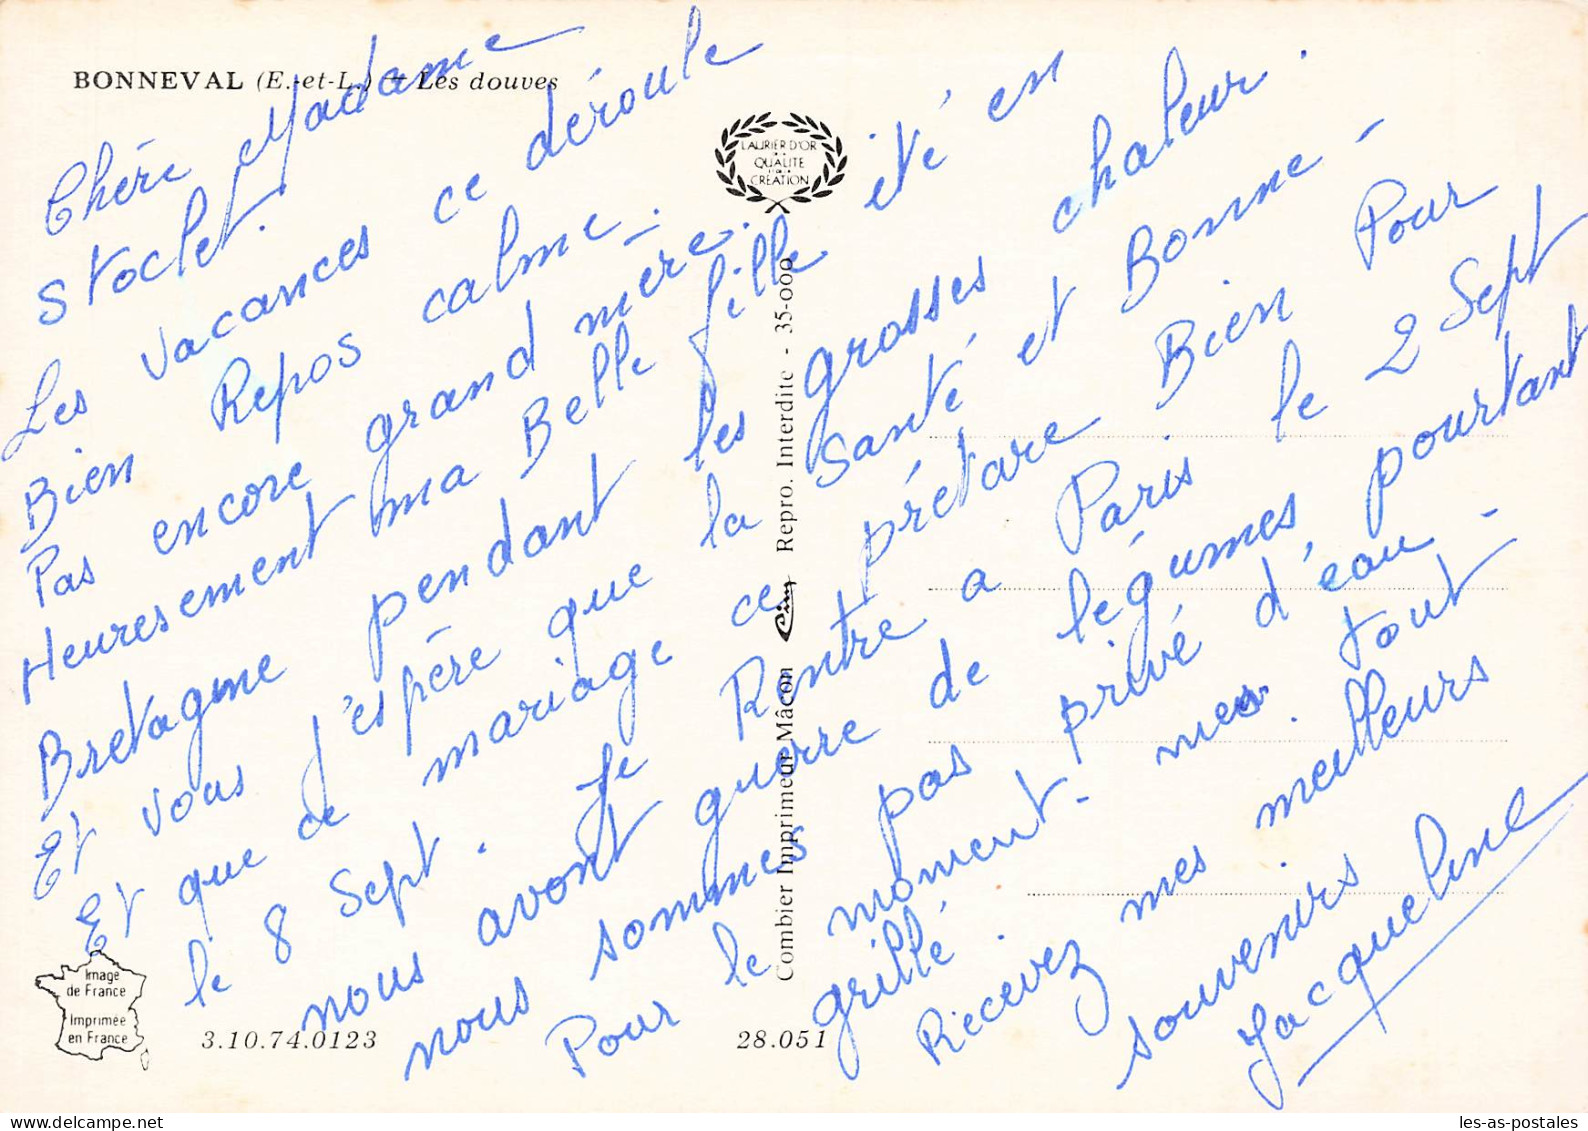 BONNEVAL (E.-et-L.) — Les douves
LAURIER D'OR
QUALITÉ
CRÉATION
Chére Madame
Stoclet.
Les vacances ce déroule
Bien Repos calme -
Pas encore grand mere.
Heuresement ma Belle fille été en
Bretagne pendant les grosses chaleur.
Et vous j'espére que la santé et Bonne -
Et que ce mariage ce prétare Bien Pour
le 8 Sept. Je Rentre a Paris le 2 Sept
nous avont guerre de légumes, pourtant
nous sommes pas privé d'eau -
Pour le moment - mes . tout
grillé
Recevez mes meilleurs
souvenirs
Jacqueline
Combier Imprimeur Mâcon Cim Repro. Interdite - 35-000
Image
de France
Imprimée
en France
3.10.74.0123
28.051
les-as-postales